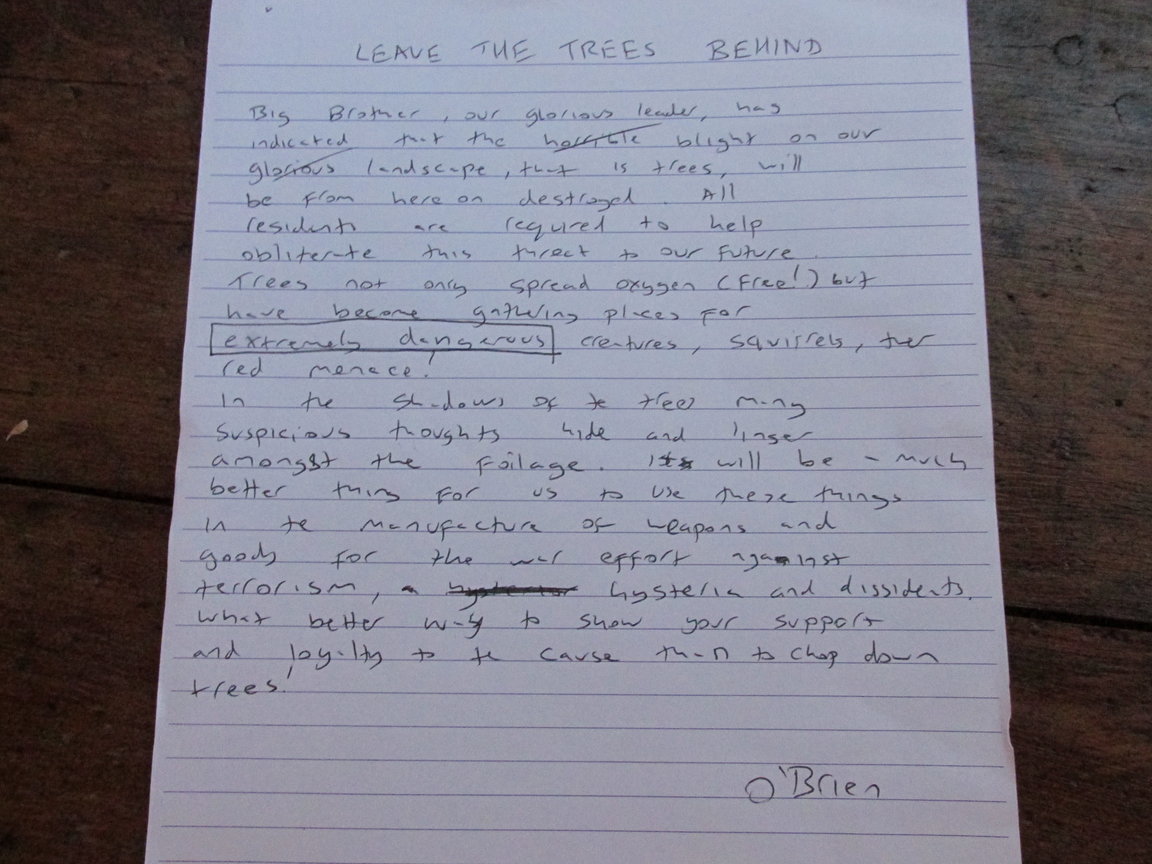 LEAVE THE TREES BEHIND
Big Brother, our glorious leader, has
indicated that the horrible blight on our
glorious landscape, that is trees, will
be from here on destroyed. All
residents are required to help
obliterate this threat to our future.
Trees not only spread oxygen (free!) but
have become gathering places for
extremely dangerous creatures, squirrels, ther
red menace!
In the shadows of te trees many
suspicious thoughts hide and linger
amongst the foilage. It will be a much
better thing for us to use these things
in te manufacture of weapons and
goods for the war effort against
terrorism, hysteria and dissidents.
What better way to show your support
and loyalty to te cause than to chop down
trees!
O'Brien